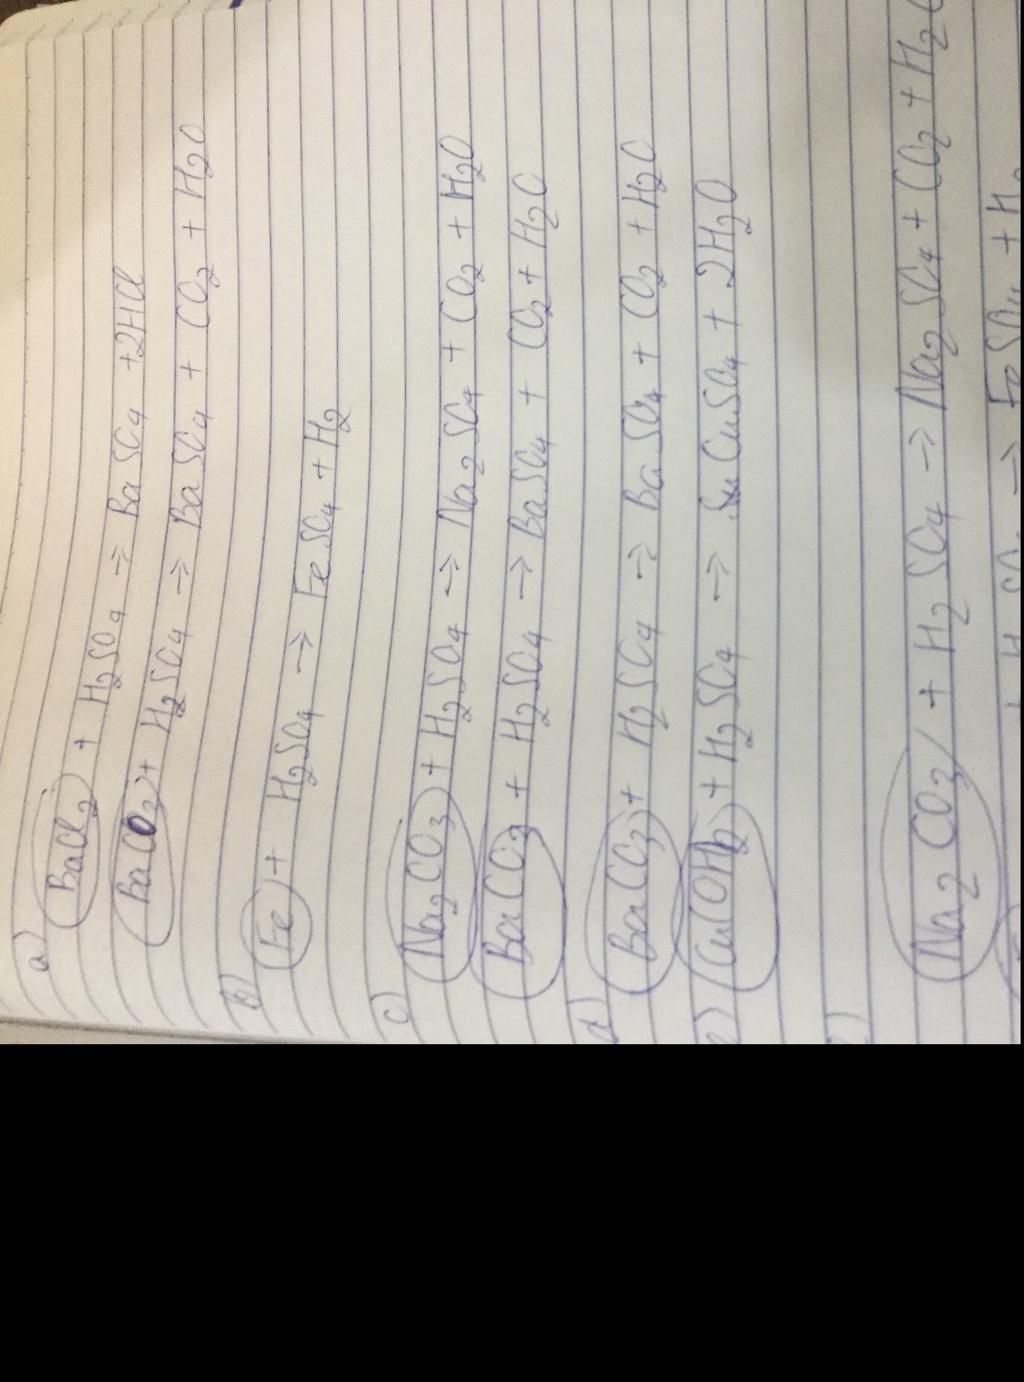 a)
BaCl2 + H2SO4 → BaSO4 + 2HCl
BaCO3 + H2SO4 → BaSO4 + CO2 + H2O
b)
Fe + H2SO4 → FeSO4 + H2
c)
Na2CO3 + H2SO4 → Na2SO4 + CO2 + H2O
BaCO3 + H2SO4 → BaSO4 + CO2 + H2O
d)
BaCO3 + H2SO4 → BaSO4 + CO2 + H2O
e) Cu(OH)2 + H2SO4 → CuSO4 + 2H2O
Na2CO3 + H2SO4 → Na2SO4 + CO2 + H2O
→ FeSO4 + H2